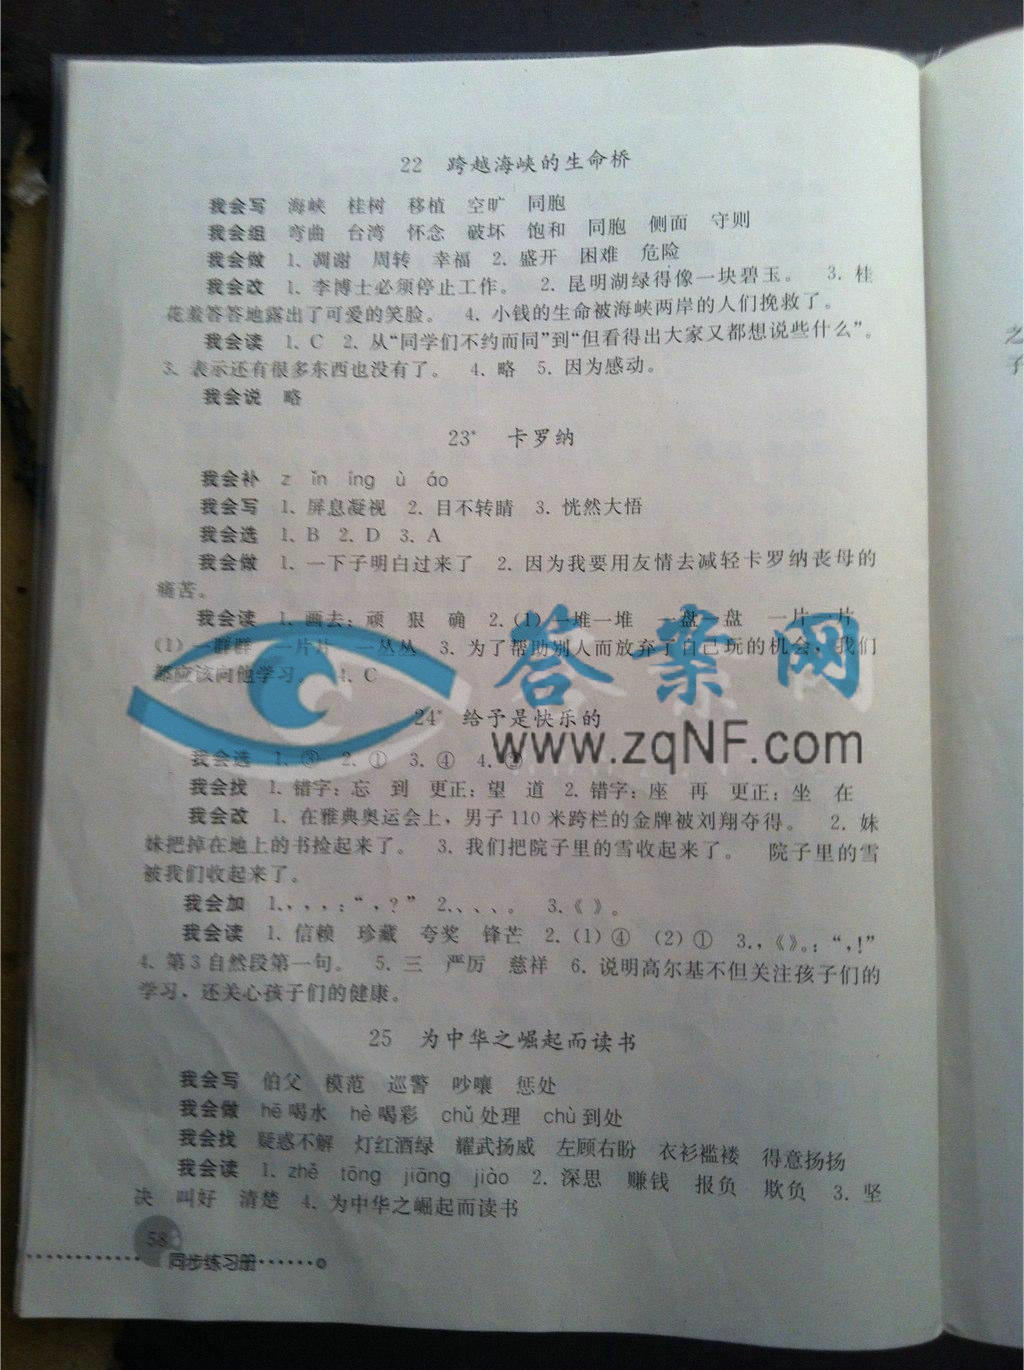 22 跨越海峡的生命桥
我会写 海峡 桂树 移植 空旷 同胞
我会组 弯曲 台湾 怀念 破坏 饱和 同胞 侧面 守则
我会做 1、凋谢 周转 幸福 2. 盛开 困难 危险
我会改 1、李博士必须停止工作。 2. 昆明湖绿得像一块碧玉。 3. 桂
花羞答答地露出了可爱的笑脸。 4、小钱的生命被海峡两岸的人们挽救了。
我会读 1. C 2、从“同学们不约而同”到“但看得出大家又都想说些什么”。
3、表示还有很多东西也没有了。 4、略 5、因为感动。
我会说 略
23* 卡罗纳
我会补 z ǐn íng ù áo
我会写 1、屏息凝视 2、目不转睛 3. 恍然大悟
我会选 1、B 2、D 3、A
我会做 1、一下子明白过来了 2. 因为我要用友情去减轻卡罗纳丧母的
痛苦。
我会读 1. 画去：顽 狠 确 2. (1) 一堆一堆 一盘一盘 一片一片
(1) 一群群 一片片 一丛丛 3. 为了帮助别人而放弃了自己玩的机会，我们
都应该向他学习。 4、C
24* 给予是快乐的
我会选 1、③ 2、① 3、④ 4、
我会找 1. 错字：忘 到 更正：望 道 2. 错字：座 再 更正：坐 在
我会改 1、在雅典奥运会上，男子110米跨栏的金牌被刘翔夺得。 2. 妹
妹把掉在地上的书捡起来了。 3、我们把院子里的雪收起来了。 院子里的雪
被我们收起来了。
我会加 1、，，，：“，？” 2、、、、。 3.《 》。
我会读 1、信赖 珍藏 夸奖 锋芒 2.(1)④ (2)① 3.，《》。：“，！”
4、第3自然段第一句。 5、三 严厉 慈祥 6. 说明高尔基不但关注孩子们的
学习，还关心孩子们的健康。
25 为中华之崛起而读书
我会写 伯父 模范 巡警 吵嚷 惩处
我会做 hē喝水 hè喝彩 chǔ处理 chù到处
我会找 疑惑不解 灯红酒绿 耀武扬威 左顾右盼 衣衫褴褛 得意扬扬
我会读 1、zhě tōng jiāng jiào 2. 深思 赚钱 报负 欺负 3. 坚
决 叫好 清楚 4. 为中华之崛起而读书
58
同步练习册
之
子
答案网
www.zqNF.com